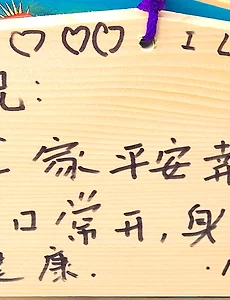 I
祝：
家平安幸
口常开，身
健康.